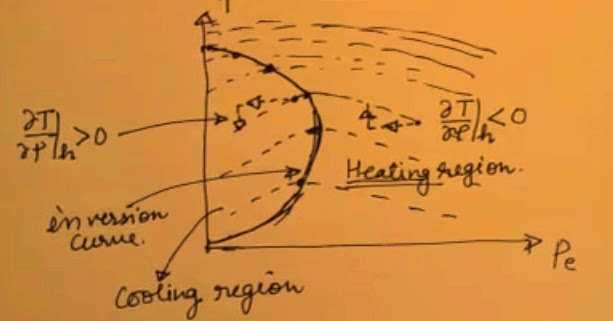 ∂T/∂P|h > 0
∂T/∂P|h < 0
Heating region.
inversion
curve.
Cooling region
Pe